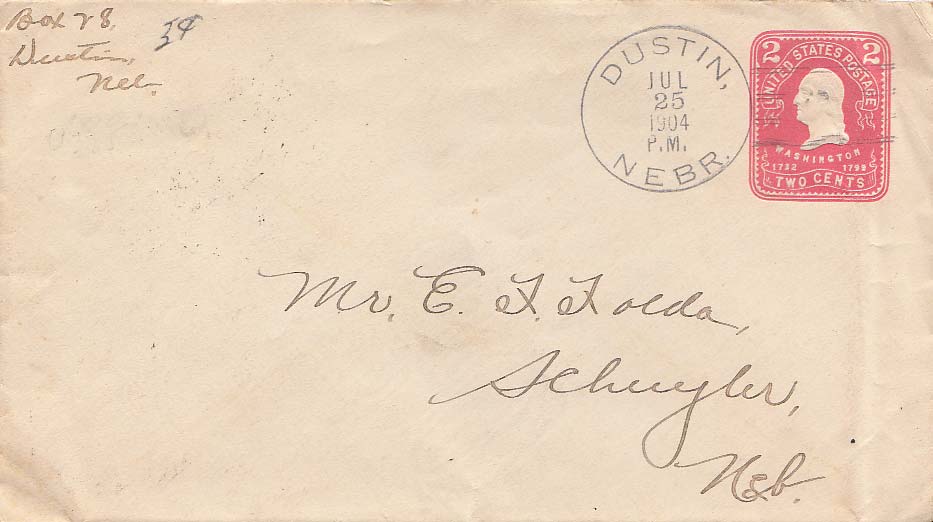 Box 28,
Dustin,
Neb.
5¢
DUSTIN,
JUL
25
1904
P.M.
NEBR.
2 2
UNITED STATES POSTAGE
WASHINGTON
1732 1799
TWO CENTS
Mr. E. F. Folda,
Schuyler,
Neb.